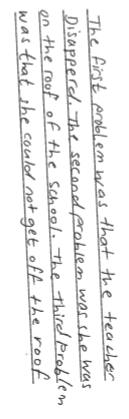 The first problem was that the teacher
Disapperd. The second problem was she was
on the roof of the school. The third problem
was that she could not get off the roof